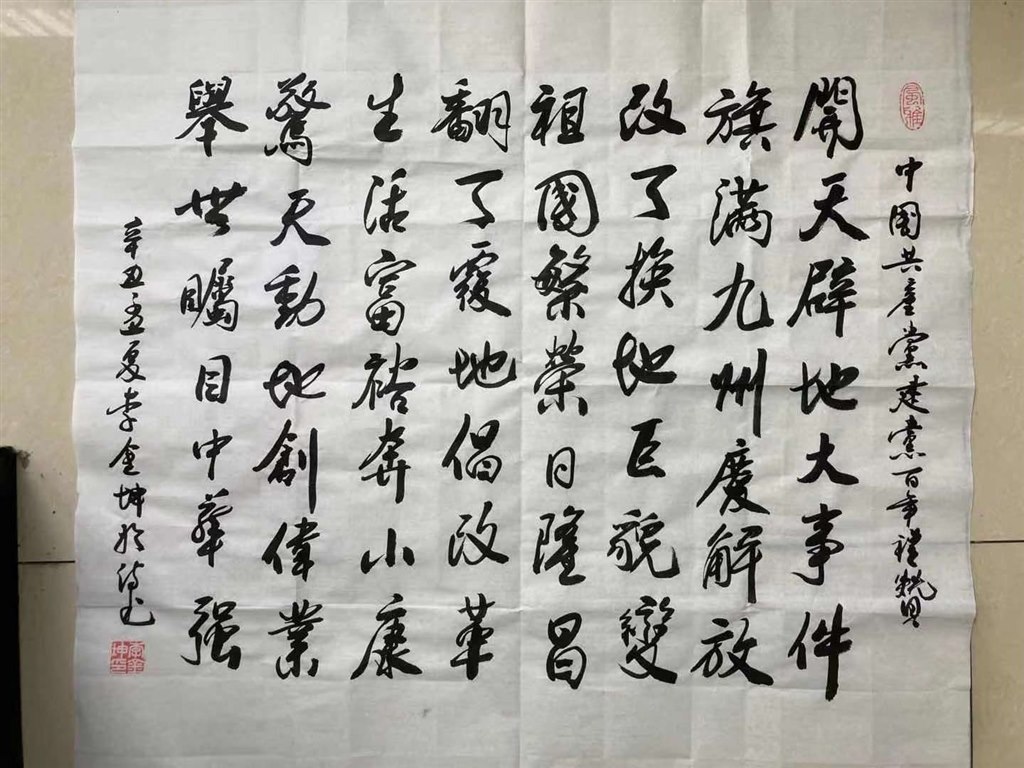 中國共產黨建黨百年禮贊
開天辟地大事件
旗滿九州慶解放
改了換地巨貌變
祖國繁榮日隆昌
翻了覆地倡改革
生活富裕奔小康
驚天動地創偉業
舉世矚目中華强
辛丑孟夏李金坤於
李金坤印